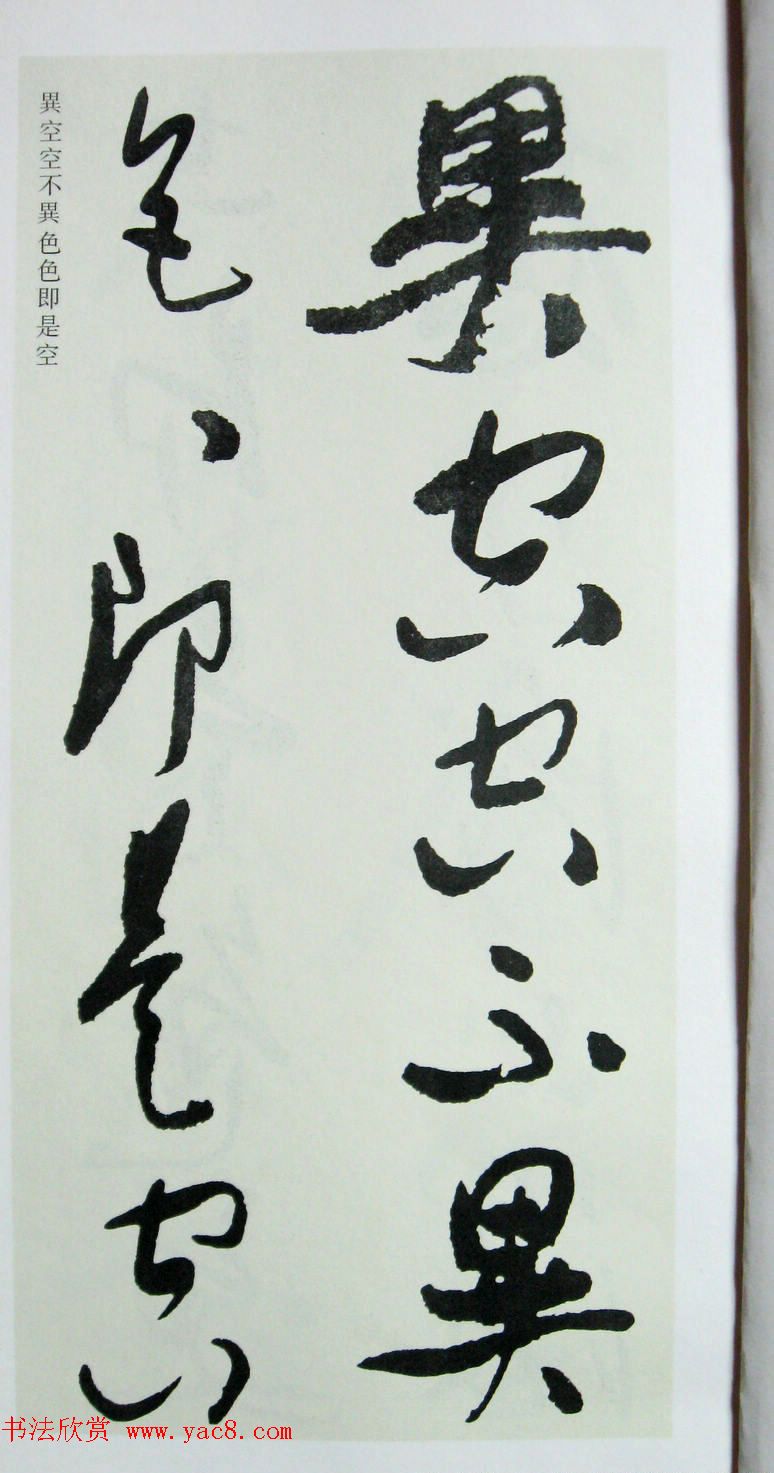 異空空不異
色、即是空
異空空不異色色即是空
书法欣赏 www.yac8.com